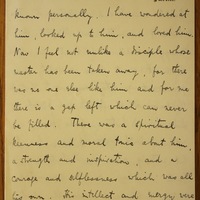 known personally. I have wondered at
him, looked up to him, and loved him.
Now I feel not unlike a disciple whose
master has been taken away, for there
was no one else like him and for me
there is a gap left which can never
be filled. There was a spiritual
keenness and moral tonic about him,
a strength and inspiration, and a
courage and selflessness which was all
his own. His intellect and energy were